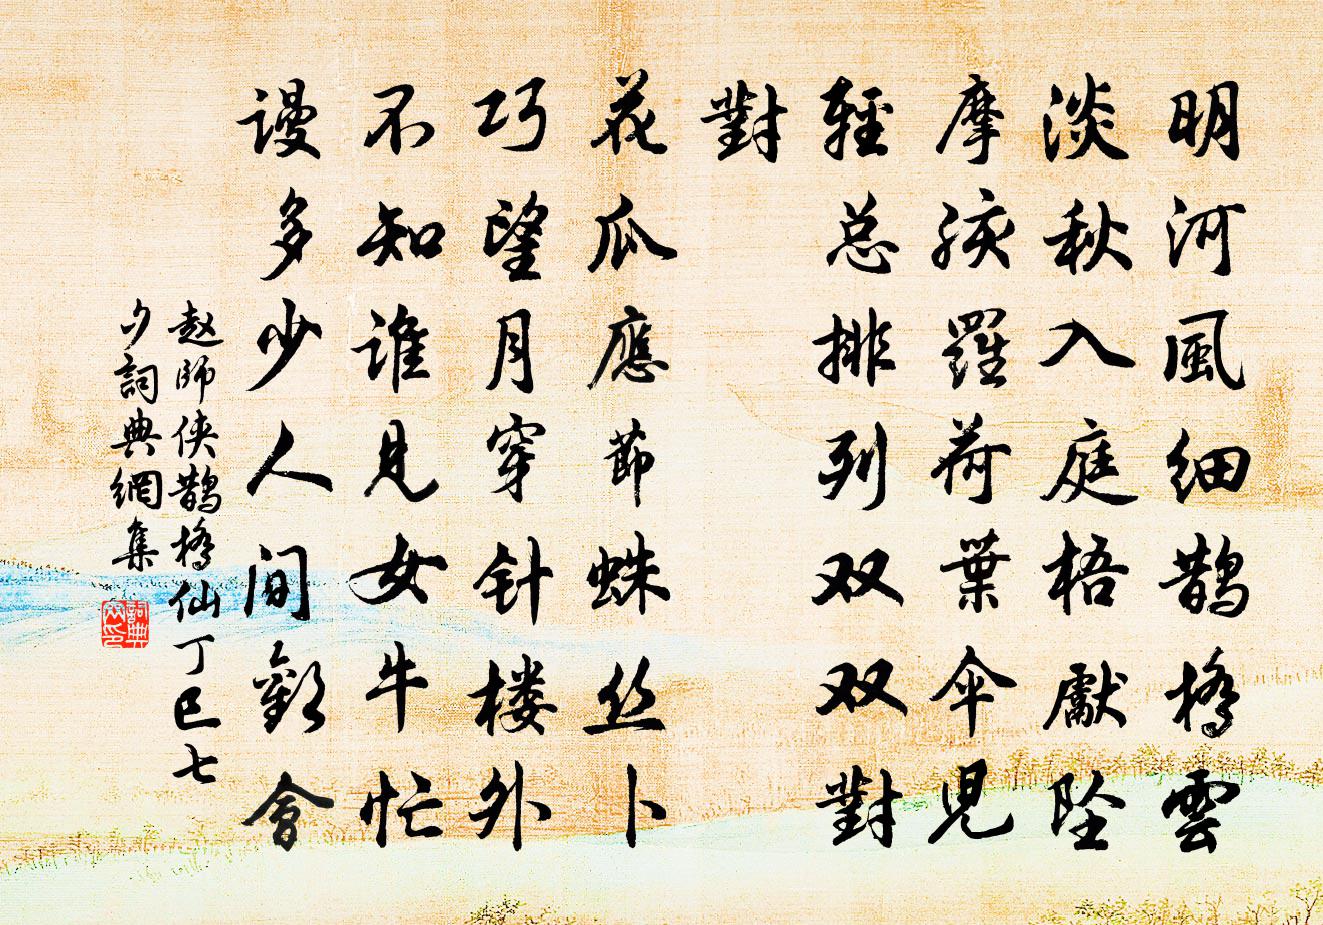 明河風细鵲橋雲
淡秋入庭梧獻坠
摩孩羅荷葉伞児
輕总排列双双對
對
花瓜應節蛛丝卜
巧望月穿针楼外
不知谁见女牛忙
谩多少人间歡會
赵師侠鵲橋仙丁巳七
夕詞典網集